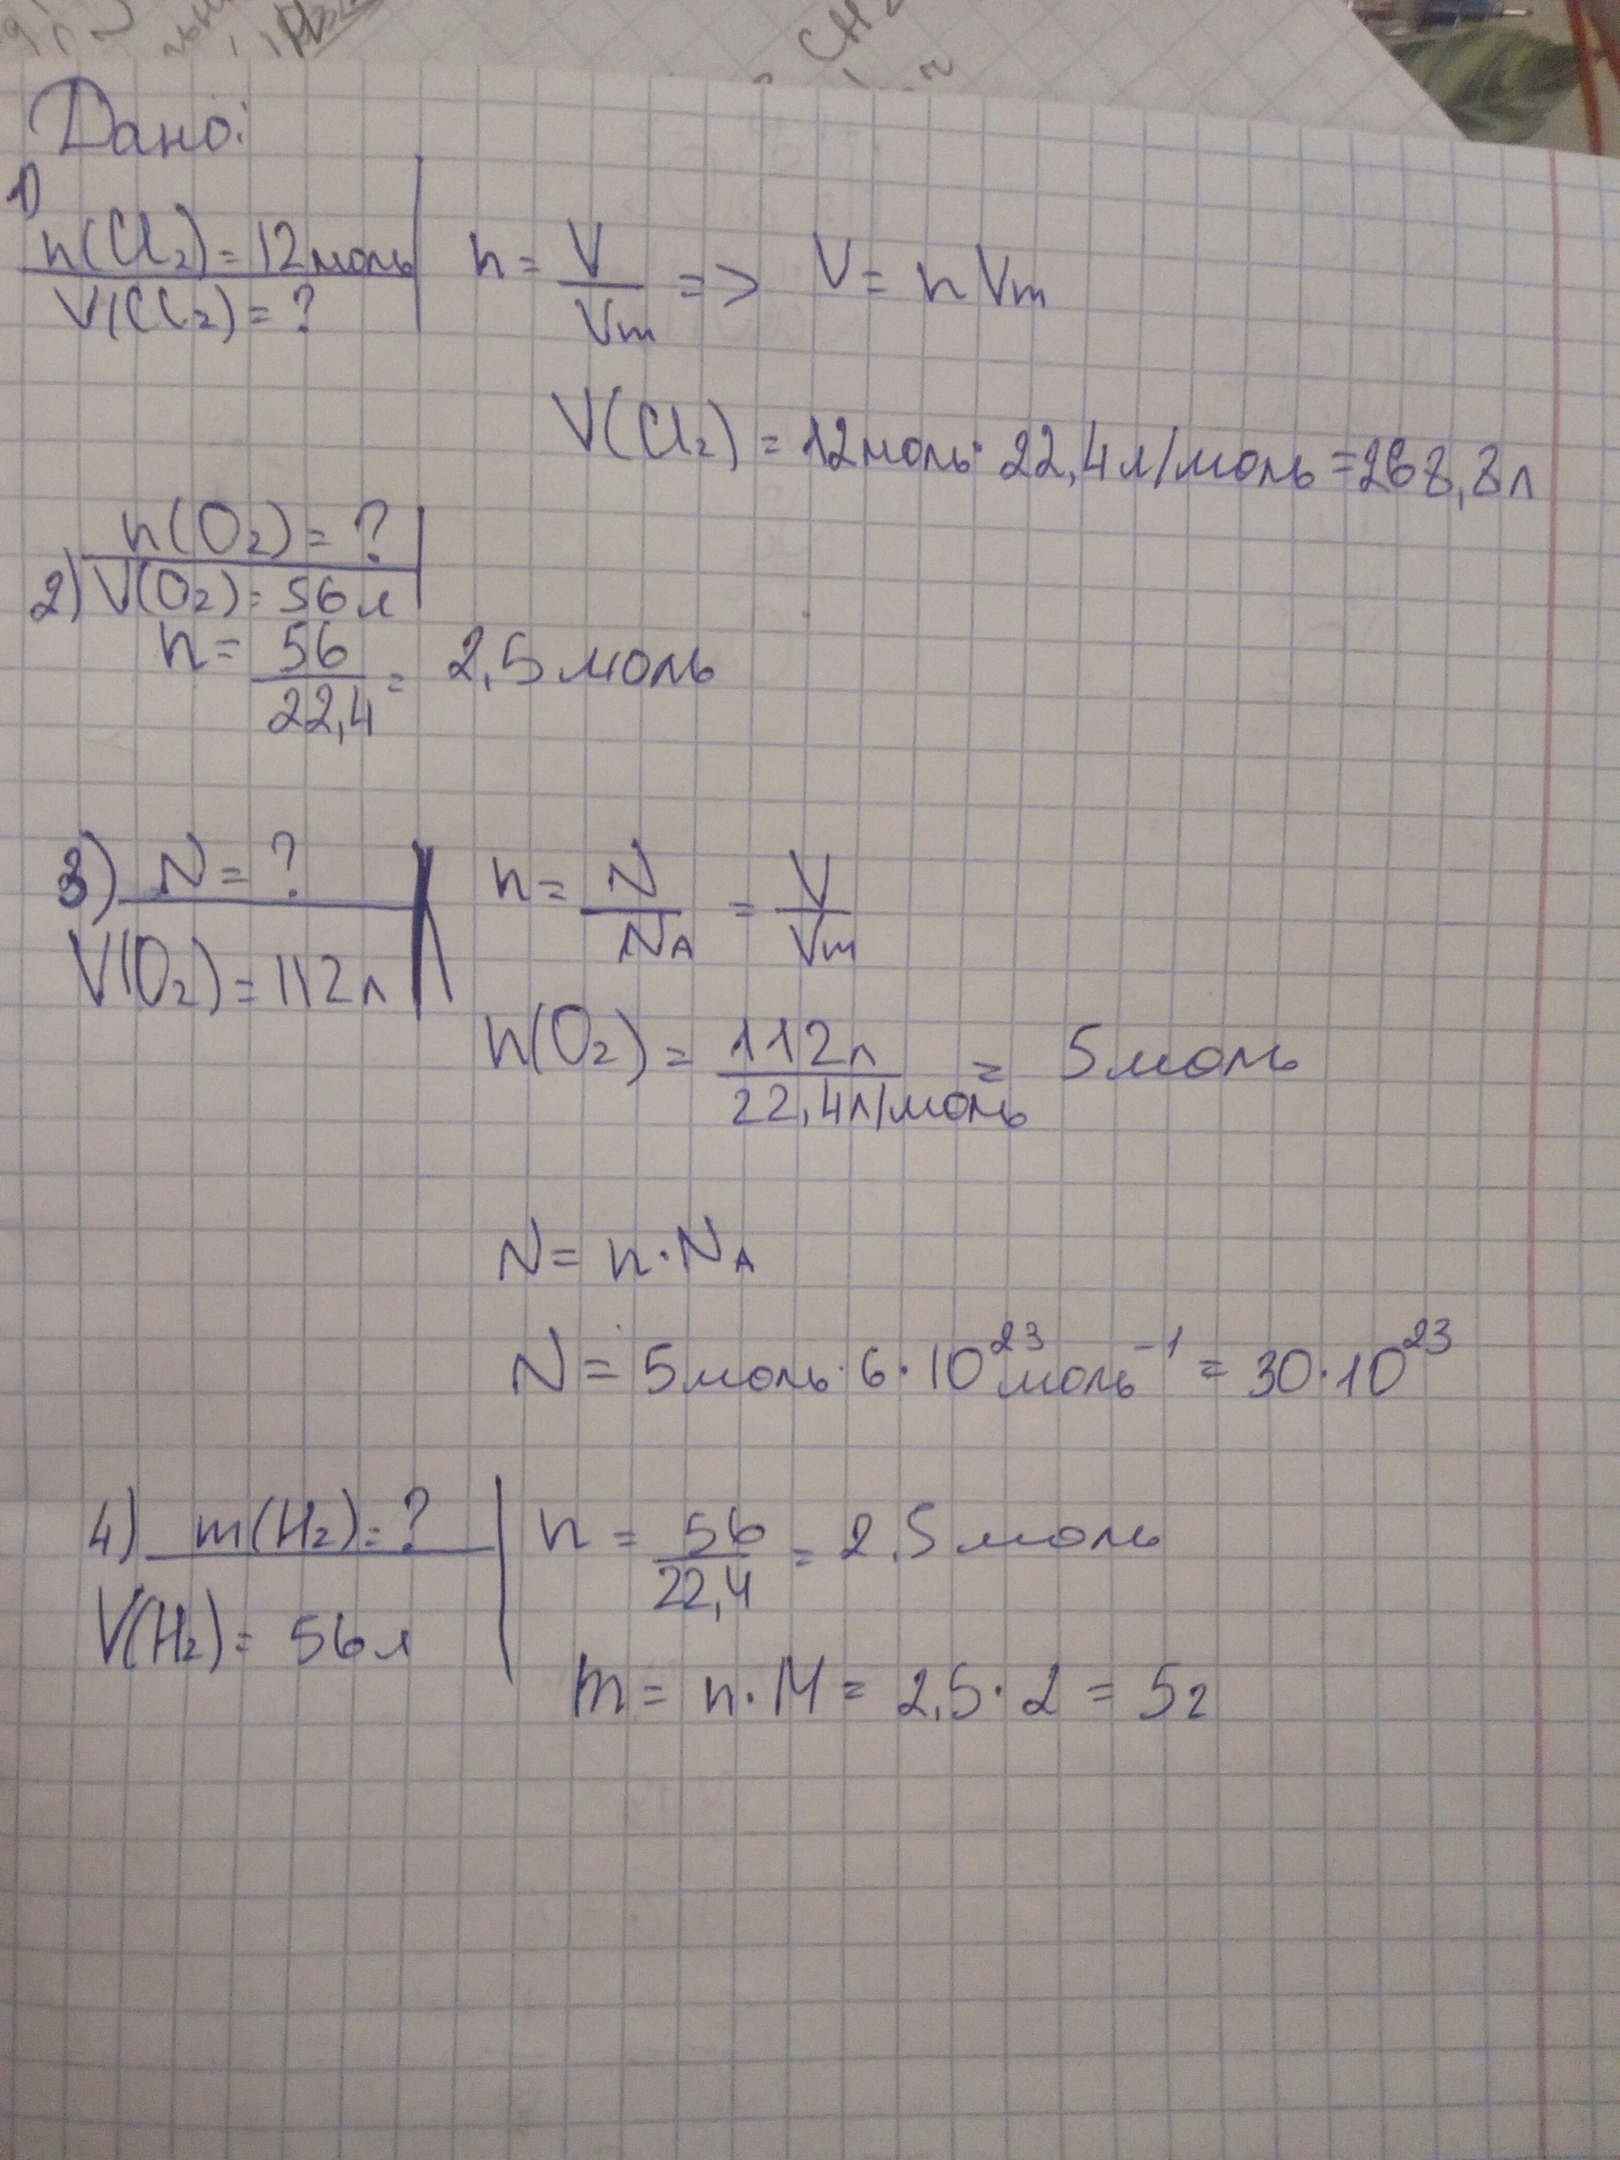 Дано:
1)
n(Cl₂) = 12 моль
V(Cl₂) = ?
n = V/Vm => V = n Vm
V(Cl₂) = 12 моль · 22,4 л/моль = 268,8 л
n(O₂) = ?
2) V(O₂) = 56 л
n = 56/22,4 = 2,5 моль
3) N = ?
V(O₂) = 112 л
n = N/NA = V/Vm
n(O₂) = 112 л/22,4 л/моль = 5 моль
N = n · NA
N = 5 моль · 6 · 10²³ моль⁻¹ = 30 · 10²³
4) m(H₂) = ?
V(H₂) = 56 л
n = 56/22,4 = 2,5 моль
m = n · M = 2,5 · 2 = 5 г